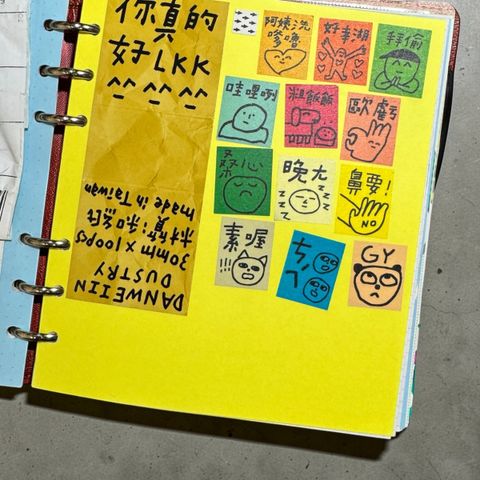 你真的
好LKK
^^ ^^ ^^
DANWEIIN
DUSTRY
30mm x 100pcs
材質:和紙
made in Taiwan
阿姨洗
嚕
拜偷
哇哩咧
粗飯飯
歐虧
桑心
晚ㄤ
z z z
z z z
鼻要!
NO
素喔
!!!
GY